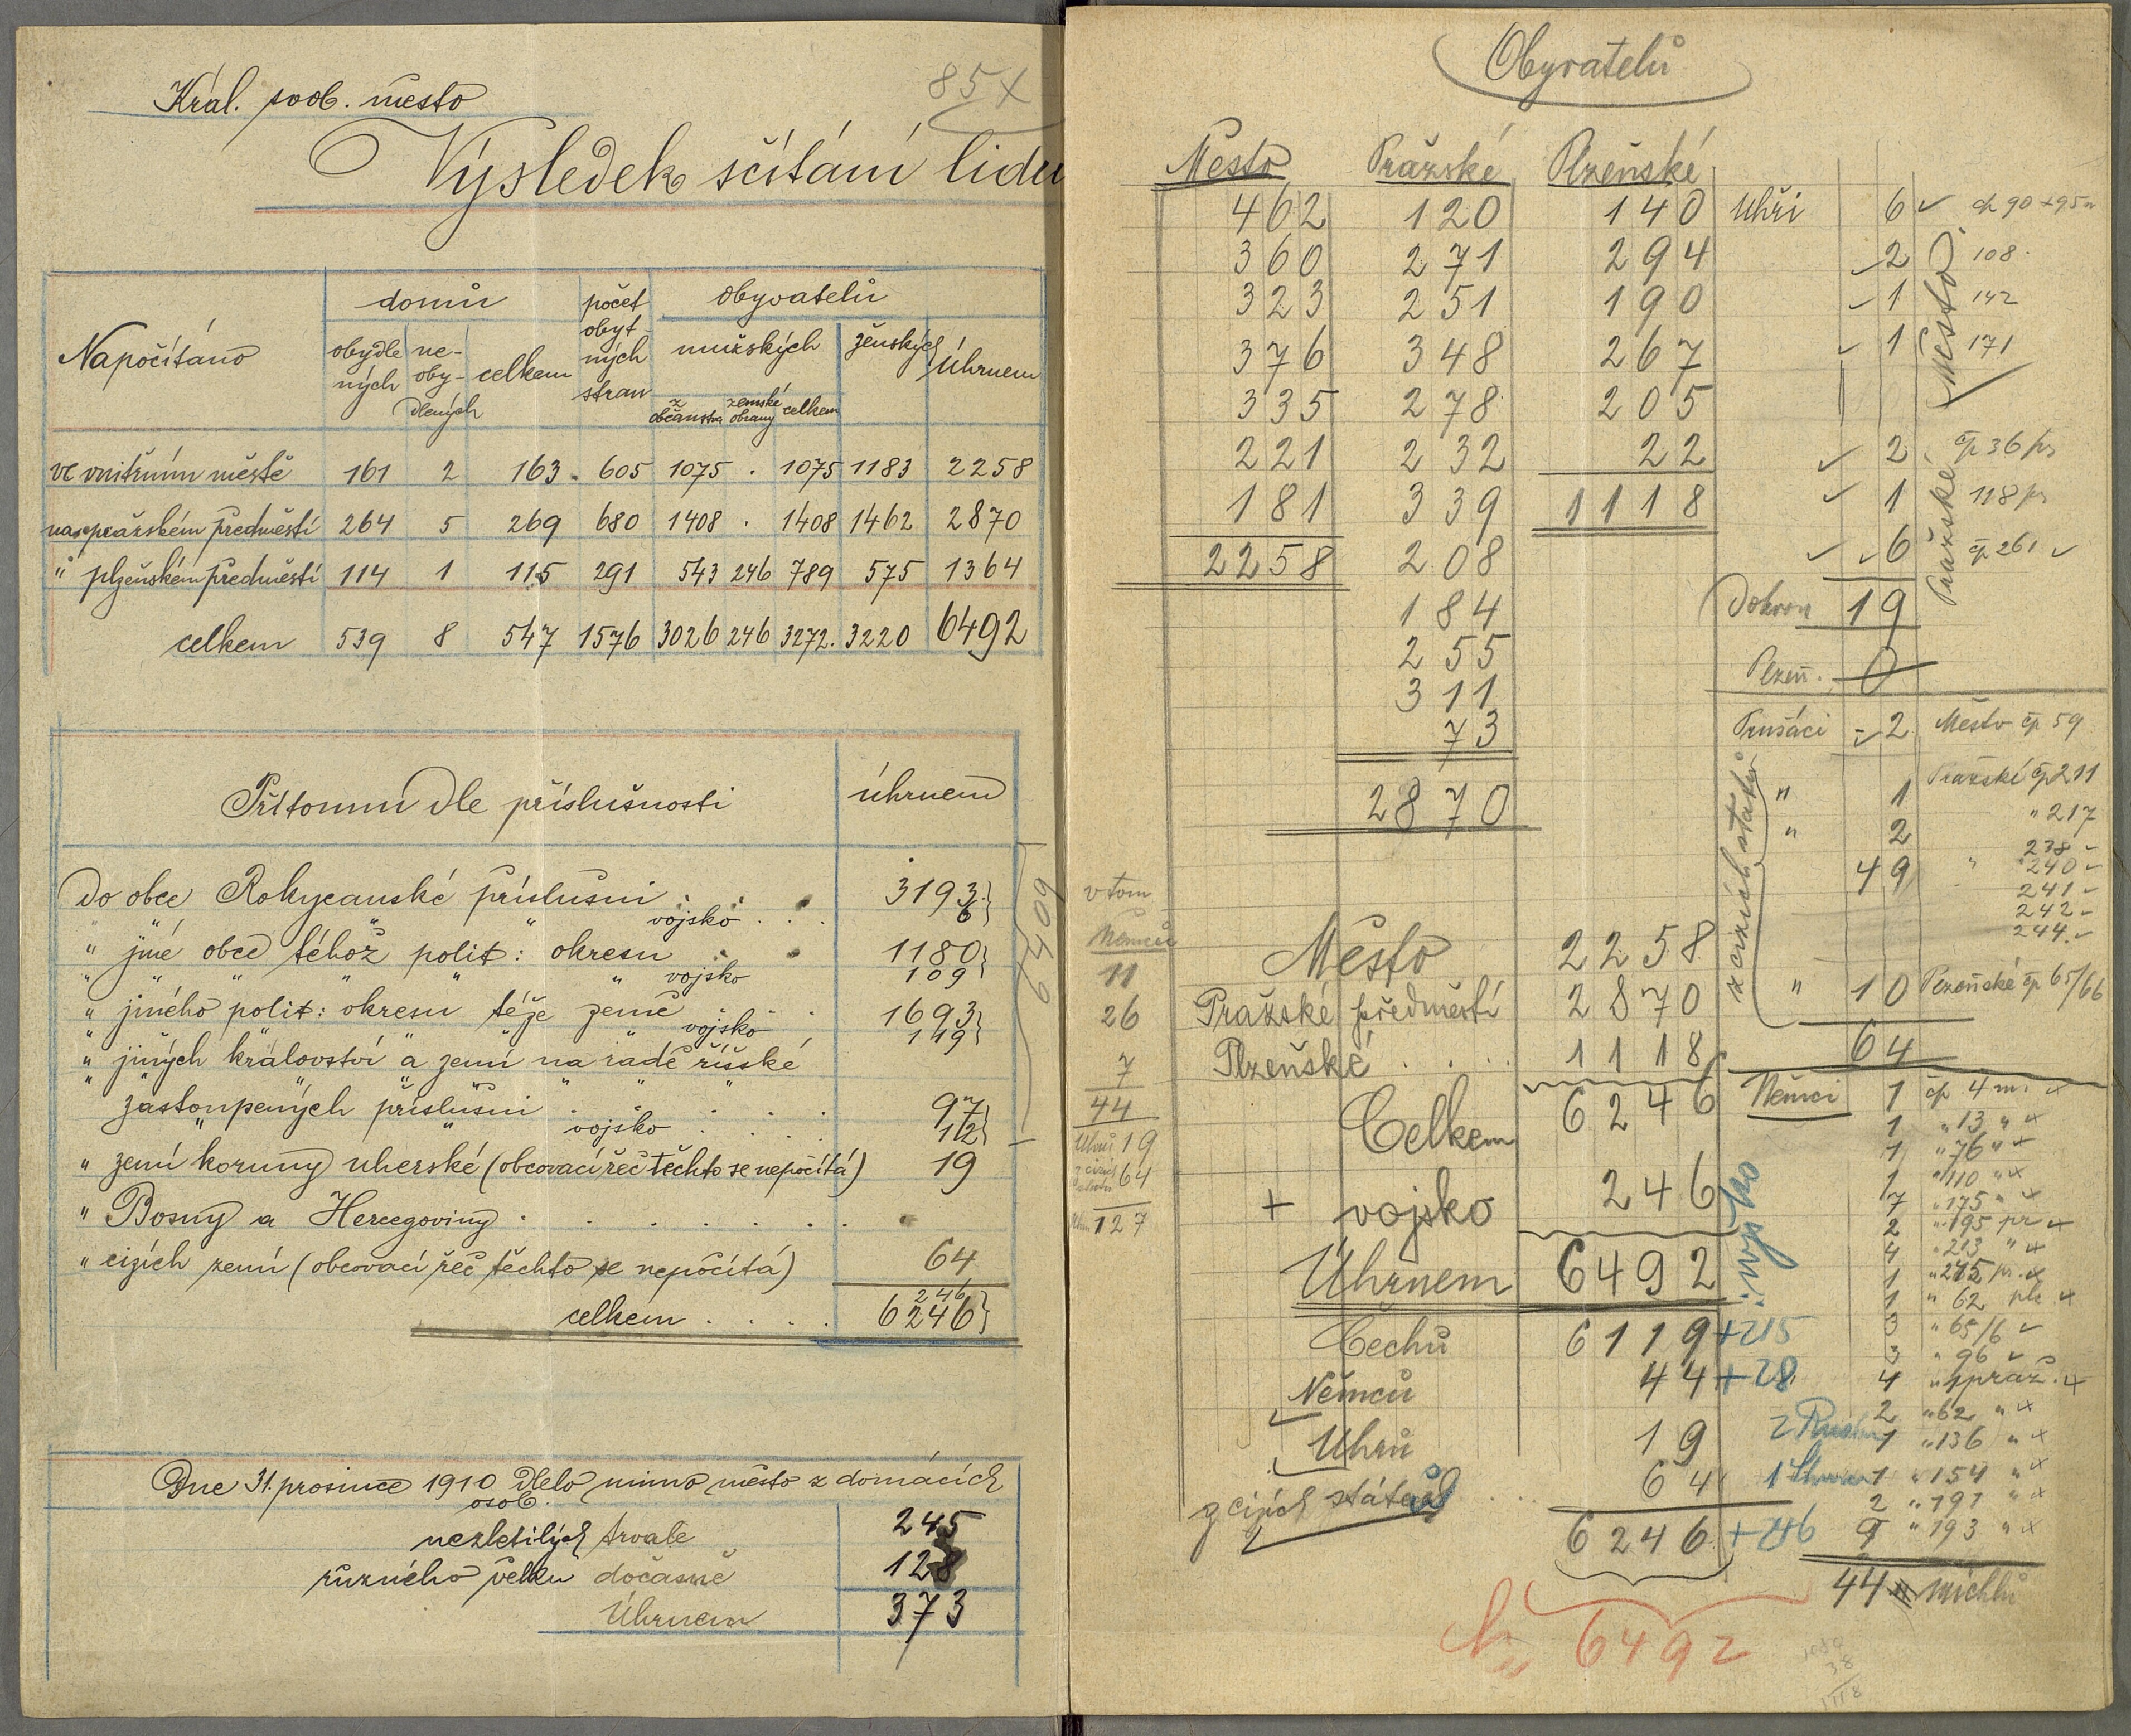 Král. svob. město
85
Výsledek sčítání lidu
Napočítáno
domů
počet obyt- ných stran
obyvatelů
obydle ných
ne- oby- dlených
celkem
mužských
ženských
Úhrnem
z občanstva
zemské obrany
celkem
ve vnitřním městě 161 2 163 605 1075 . 1075 1183 2258
na pražském předměstí 264 5 269 680 1408 . 1408 1462 2870
" plzeňském předměstí 114 1 115 291 543 246 789 575 1364
celkem 539 8 547 1576 3026 246 3272 3220 6492
Přítomni dle příslušnosti
úhrnem
Do obce Rokycanské příslušni . . 3193
" " " " vojsko . . . 6
" jiné obce téhož polit: okresu . . 1180
" " " " " " vojsko 109
" jiného polit: okresu téže země . . 1693
" " " " " vojsko 119
" jiných království a zemí na radě říšské
zastoupených příslušni . . . . . 97
" " vojsko . . . . 12
" zemí koruny uherské (obcovací řeč těchto se nepočítá) 19
" Bosny a Hercegoviny . . . . . . .
" cizích zemí (obcovací řeč těchto se nepočítá) 64
246
celkem . . . . 6246
6409
Dne 31. prosince 1910 dlelo mimo město z domácích
osob
nezletilých trvale 245
různého věku dočasně 128
Úhrnem 373
Obyvatelů
Město Pražské Plzeňské
462 120 140
360 271 294
323 251 190
376 348 267
335 278 205
221 232 22
181 339 1118
2258 208
184
255
311
73
2870
Uhři 6 čp 90 + 95
2 108
1 142
1 171
Město
2 čp 36
1 118
6 čp 261
Pražské
Dohrom 19
Plzeň. 0
Prusáci 2 Město čp 59
" 1 Pražské čp 211
" 2 " 217
238
49 " 240
241
242
244
" 10 Plzeňské čp 65/66
z cizích států
64
v tom
Němců
11
26
7
44
Uhrů 19
z cizích států 64
127
Město 2258
Pražské předměstí 2870
Plzeňské . . . . 1118
Celkem 6246
+ vojsko 246
Úhrnem 6492
vojsko
Čechů 6119 +215
Němců 44 +28
Uhrů 19
z cizích států . . . 64
6246 +246
6492
Němci 1 čp 4 m.
1 " 13 "
1 " 76 "
1 " 110 "
7 " 175 "
2 " 195 pr
4 " 213 "
1 " 215 pr.
1 " 62 plz
3 " 65/6
3 " 96
4 " 1 praž.
2 " 62 "
1 " 136 "
1 " 154 "
2 " 191 "
9 " 193 "
44
38
1118